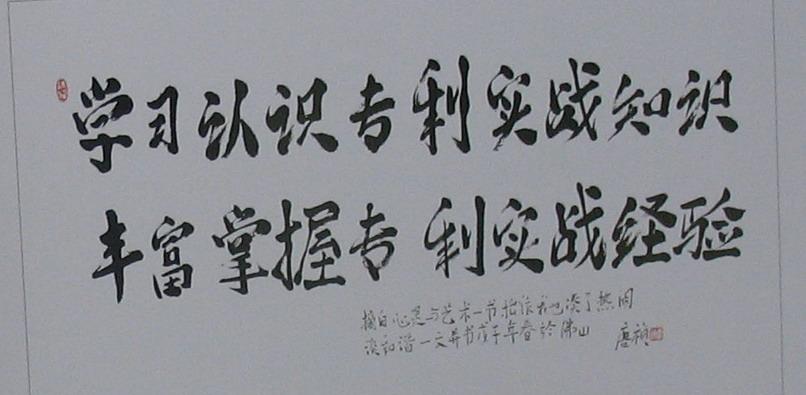 学习认识专利实战知识
丰富掌握专利实战经验
摘自心灵与艺术一书拙作我也谈了热闹
谈和谐一文并书戊子年春於佛山
唐祯